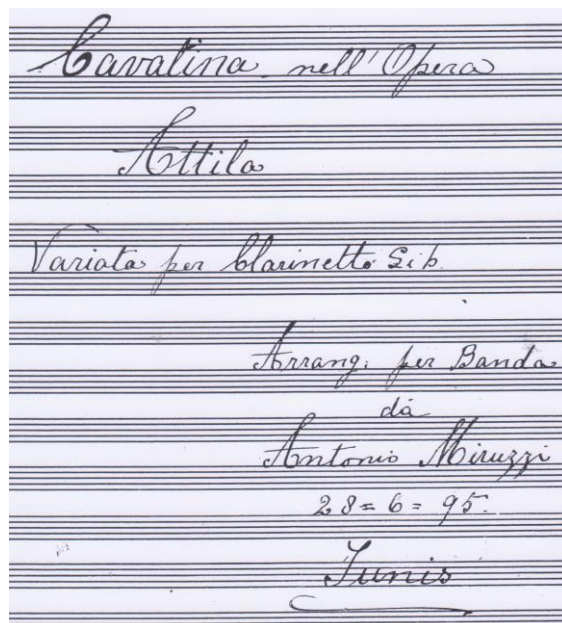 Cavatina nell' Opera
Attila
Variata per Clarinetto Si b.
Arrang: per Banda
da
Antonio Miruzzi
28=6=95.
Tunis